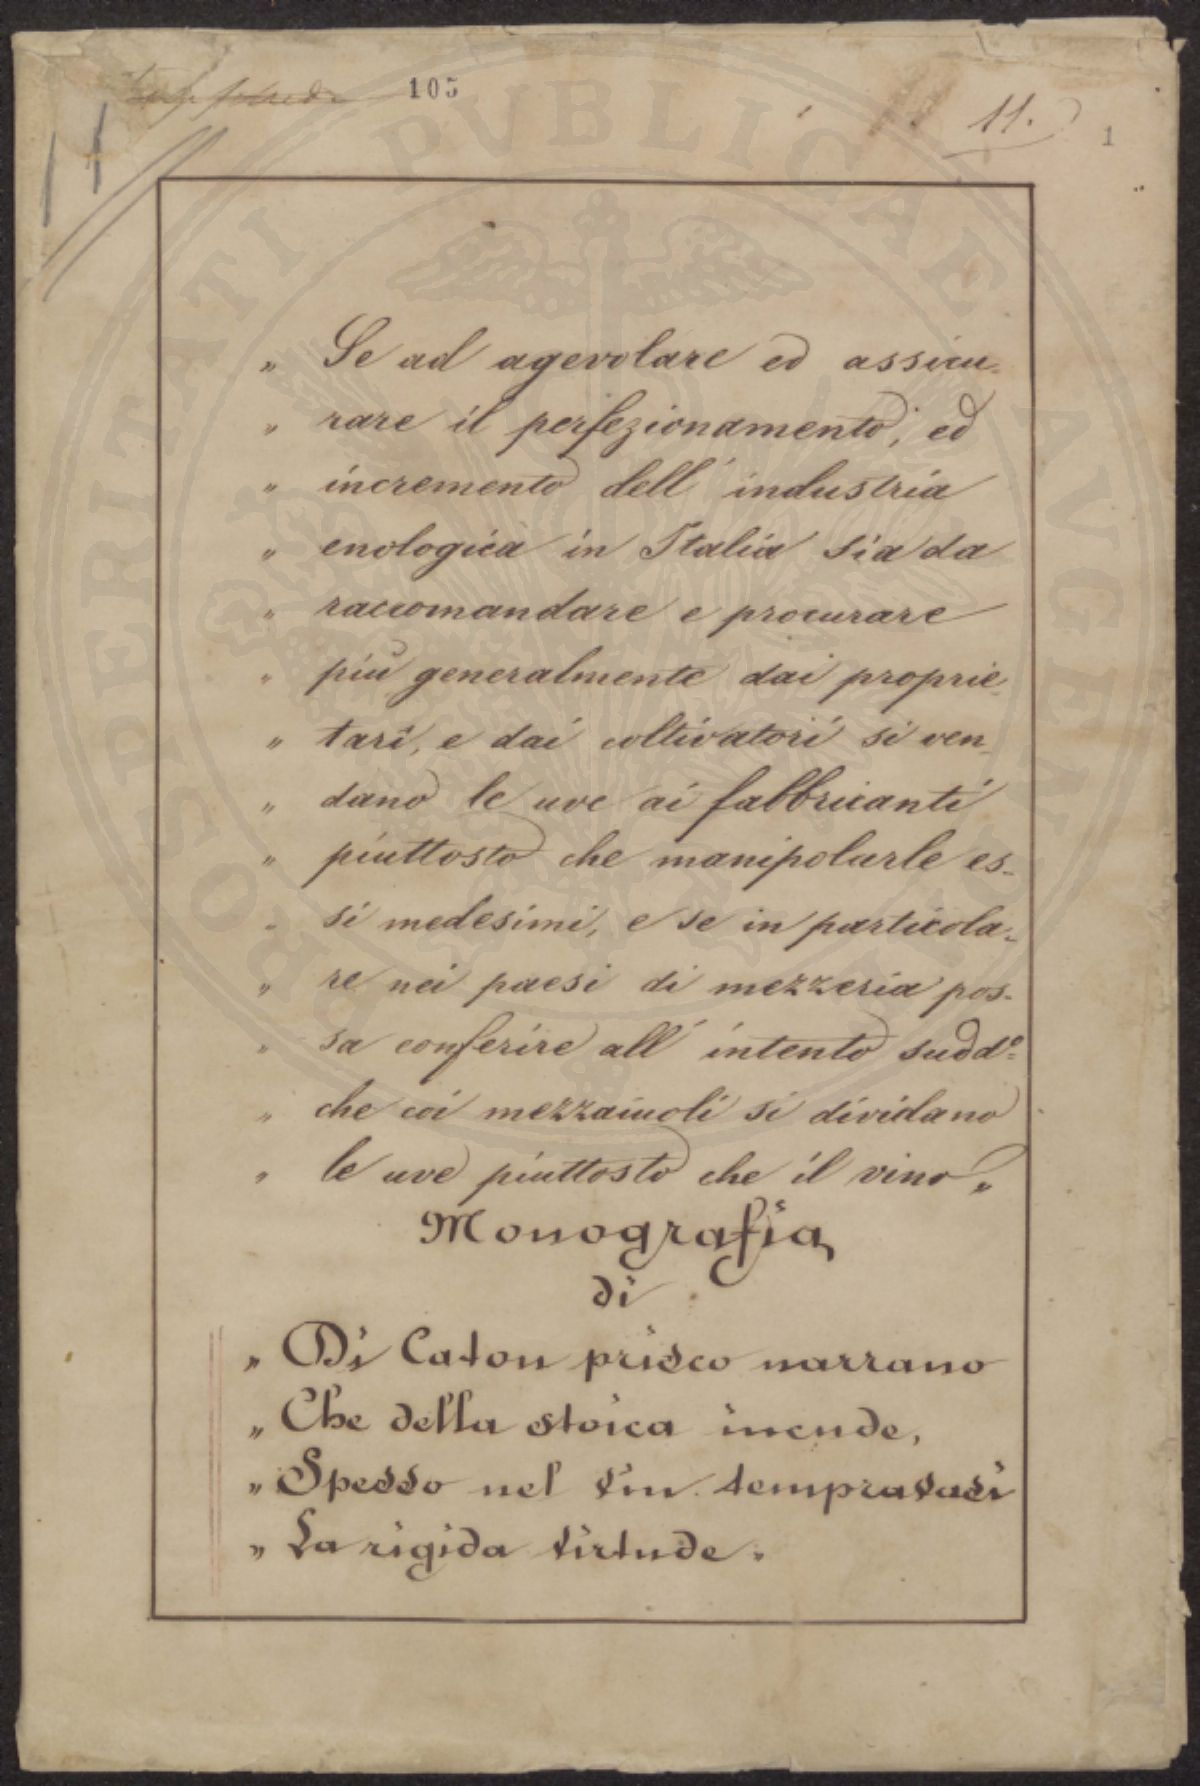 105
11.
1
„ Se ad agevolare ed assicu-
„ rare il perfezionamento, ed
„ incremento dell' industria
„ enologica in Italia sia da
„ raccomandare e procurare
„ più generalmente dai proprie-
„ tari, e dai coltivatori si ven-
„ dano le uve ai fabbricanti
„ piuttosto che manipolarle es-
„ si medesimi, e se in particola-
„ re nei paesi di mezzeria pos-
„ sa conferire all' intento sudd.º
„ che coi mezzaiuoli si dividano
„ le uve piuttosto che il vino „
Monografia
di
„ Di Caton prisco narrano
„ Che della stoica incude,
„ Spesso nel vin tempravasi
„ La rigida virtude.
PROSPERITATI PVBLICAE AVGENDAE